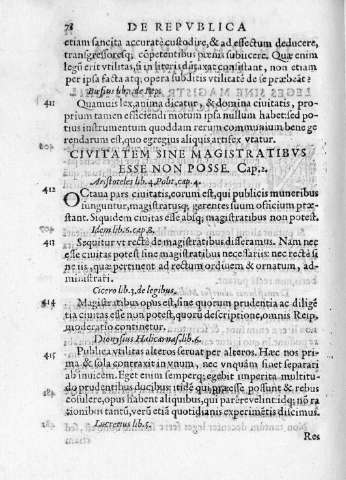 78 DE REPVBLICA
etiam sancita accuratè custodire, & ad effectum deducere,
transgressoresq; cōpetentibus pœnis subiicere. Quæ enim
legū erit vtilitas, si in literis dūtaxat consistant, non etiam
per ipsa facta atq; opera subditis vtilitatē de se præbeāt?
Bussius lib. 7. de Rep.
411 Quamuis lex, anima dicatur, & domina ciuitatis, pro-
prium tamen efficiendi motum ipsa nullum habet: sed po
tius instrumentum quoddam rerum communium bene ge
rendarum est, quo egregius aliquis artifex vtatur.
CIVITATEM SINE MAGISTRATIBVS
ESSE NON POSSE. Cap. 2.
Aristoteles lib. 4. Polit. cap. 4.
412 OCtaua pars ciuitatis, eorum est, qui publicis muneribus
funguntur, magistratusq; gerentes suum officium præ-
stant. Siquidem ciuitas esse absq; magistratibus non potest.
Idem lib. 6. cap. 8.
413 Sequitur vt rectè de magistratibus disseramus. Nam nec
esse ciuitas potest sine magistratibus necessariis: nec rectè si
ne iis, quæ pertinent ad rectum ordinem & ornatum, ad-
ministrari.
Cicero lib. 3. de legibus.
414 Magistratibus opus est, sine quorum prudentia ac diligē
tia ciuitas esse non potest, quorū descriptione, omnis Reip.
moderatio continetur.
Dionysius Halicarnas. lib. 6.
415 Publica vtilitas alteros seruat per alteros. Hæc nos pri-
ma & sola contraxit in vnum, nec vnquam sinet separari
ab inuicem. Eget enim semper; egebit imperita multitu-
do prudentibus ducibus: itidē qui præesse possunt & rebus
cōsulere, opus habent aliquibus, qui parere velint: idq; nō ra
tionibus tantū, verū etiā quotidianis experimētis discimus.
Lucretius lib. 5.
Res